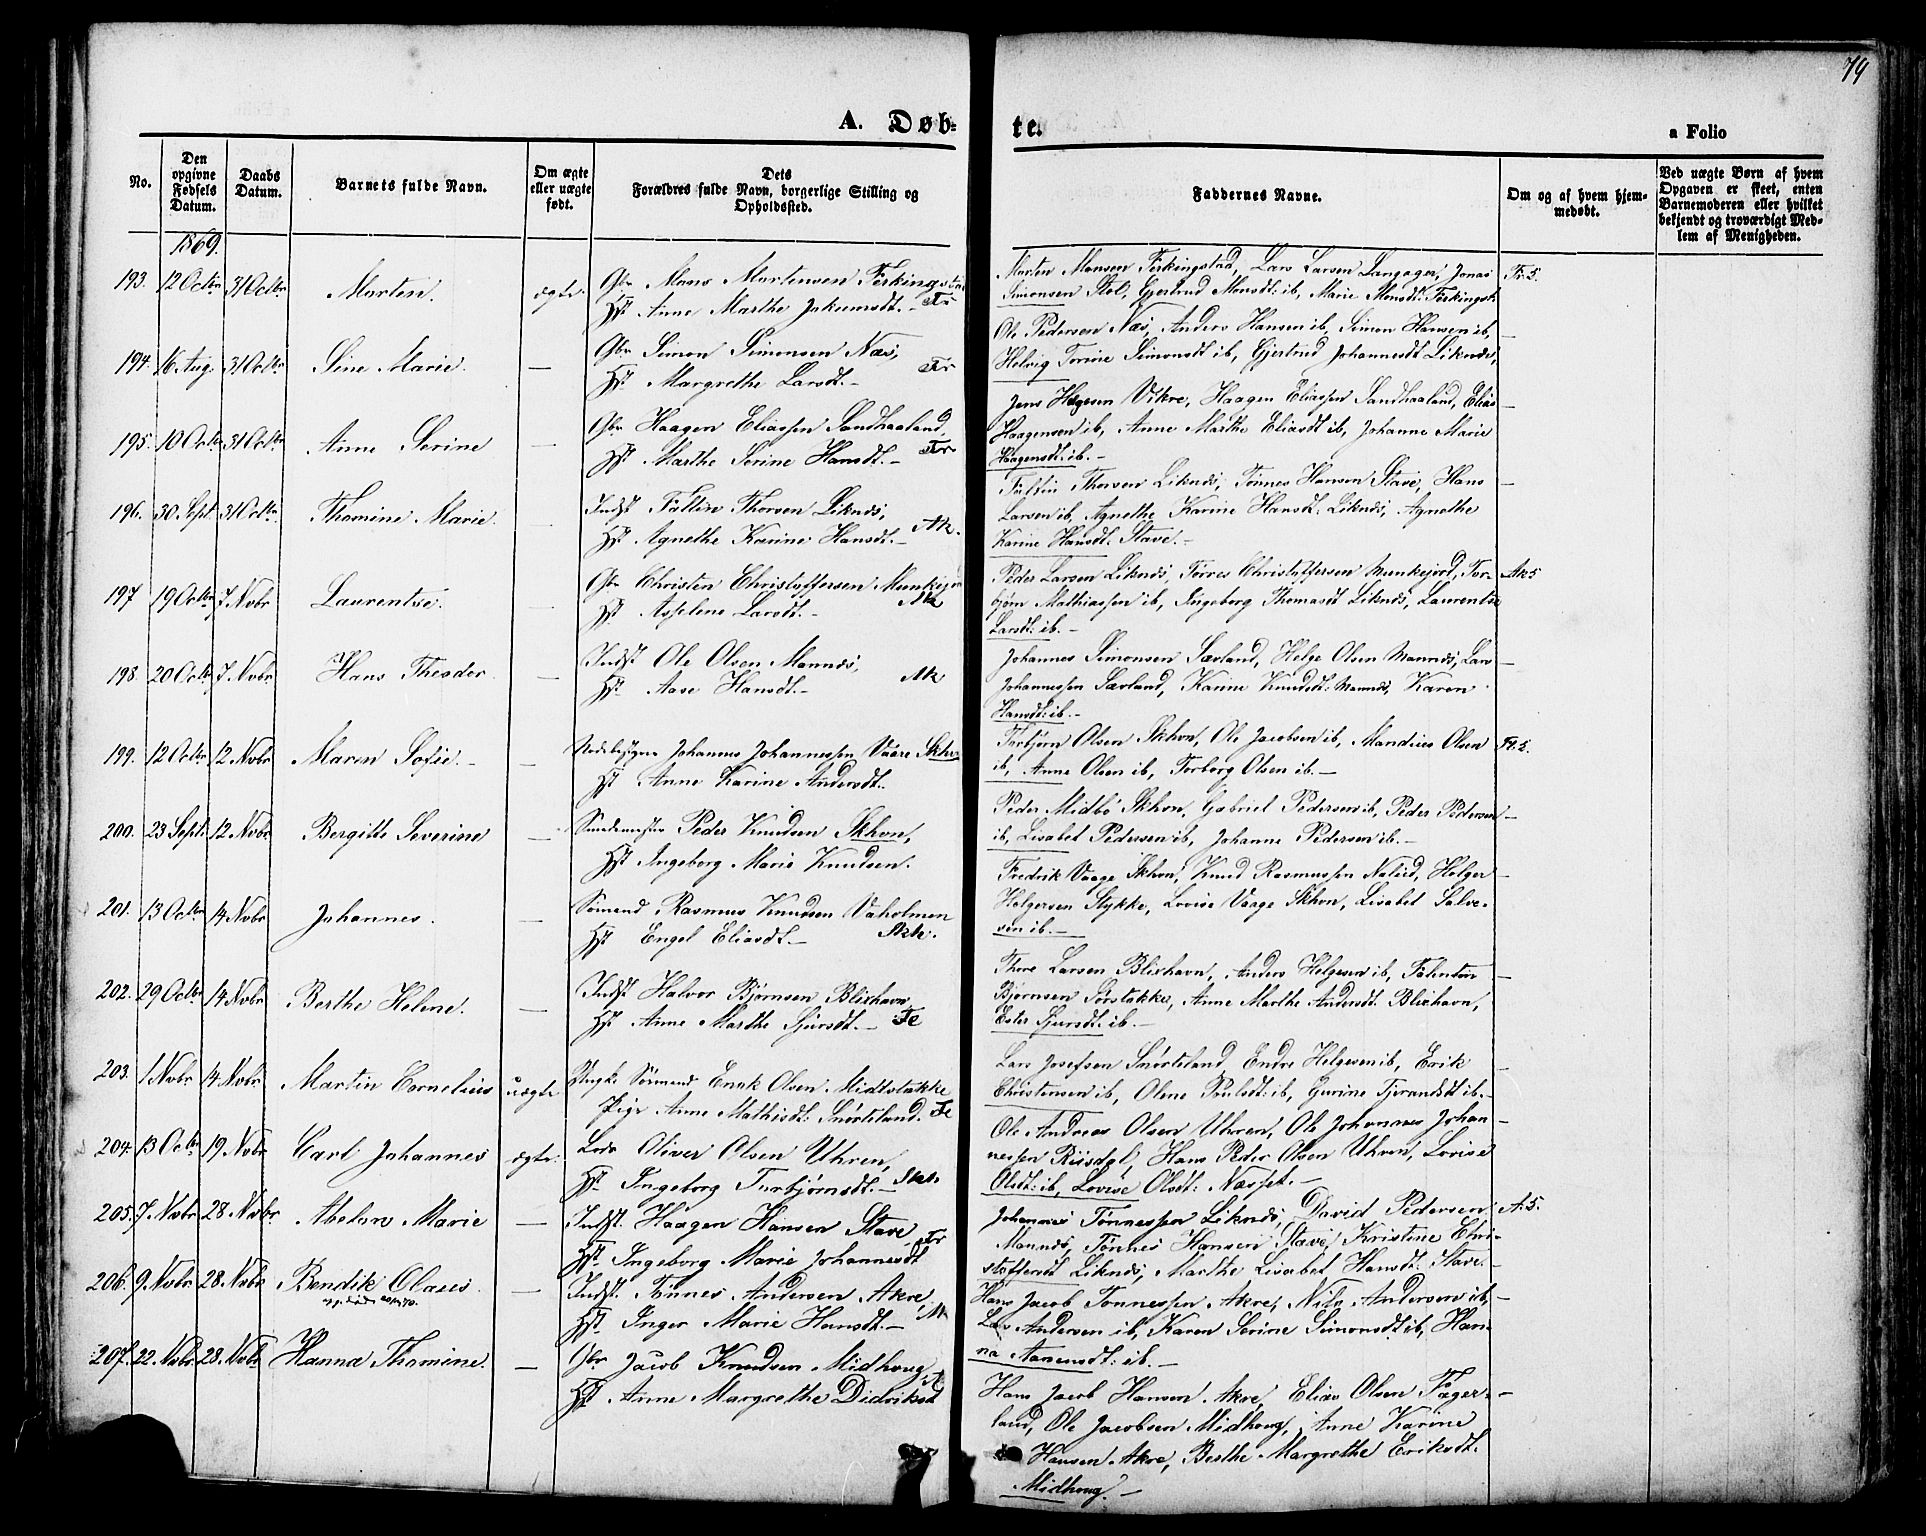 79
A. Døb-
te.
a Folio
No.
Den opgivne Fødsels Datum.
Daabs Datum.
Barnets fulde Navn.
Om ægte eller uægte født.
Dets Forældres fulde Navn, borgerlige Stilling og Opholdssted.
Faddernes Navne.
Om og af hvem hjemmedøbt.
Ved uægte Børn af hvem Opgaven er skeet, enten Barnemoderen eller hvilket bekjendt og troværdigt Medlem af Menigheden.
1869.
193. 12 Octbr 31 Octbr Marten. ægte.
Gbr Mons Martensen Ferkingstad
Hst Anne Marthe Jakumsdt.- Fr
Marten Monsen Ferkingstad, Lars Larsen Langager, Jonas Fr. 5.
Simonsen Stol, Gjertrud Monsdt: ib, Marie Monsdt: Ferkingst.
194. 16 Aug. 31 Octbr Sine Marie. —
Gbr Simon Simonsen Næs,
Hst. Margrethe Larsdt.- Fr
Ole Pedersen Næs, Anders Hansen ib, Simon Hansen ib, —
Helvig Torine Simonsdt ib, Gjertrud Johannesdt Liknæs,
195. 10 Octbr 31 Octbr Anne Serine —
Gbr Haagen Eliassen Sandhaaland,
Hst Marthe Serine Hansdt.- Fr
Jens Hågesen Vikre, Haagen Eliassen Sandhaaland, Elias —
Haagensen ib, Anne Marthe Eliasdt ib, Johanne Marie
Haagensdt: ib.-
196. 30 Sept. 31 Octbr. Thomine Marie. —
Indst Faltin Thorsen Liknæs,
Hst Agnethe Karine Hansdt.- Ak.
Faltin Thorsen Liknæs, Tønnes Hansen Stave, Hans —
Larsen ib, Agnethe Karine Hansdt. Liknæs, Agnethe
Karine Hansdt. Stave.-
197 19 Octbr 7 Novbr Laurentse. —
Gbr Christen Christoffersen Munkejord
Hst. Asselene Larsdt.- Ak
Peder Larsen Liknæs, Torres Christoffersen Munkejord, Tor- Ak 5
bjørn Mathiassen ib, Ingeborg Thomasdt Liknæs, Laurentse
Larsdt: ib.-
198. 20 Octbr 7 Novbr Hans Theodor. —
Indst Ole Olsen Mannæs,
Hst. Aase Hansdt.- Ak
Johannes Simonsen Sævland, Helge Olsen Mannæs, Lars —
Johannessen Sævland, Karine Knudsdt: Mannæs, Karen
Hansdt: ib.-
199. 12 Octbr 12 Novbr Maren Sofie.- —
Johannes Johannessen Vaare Skhvn
Hst Anne Karine Andersdt.
Torbjørn Olsen Skhvn, Ole Jacobsen ib, Mandius Olsen Fl. 5.
ib, Anne Olsen ib, Torborg Olsen ib.-
200. 23 Sept. 12 Novbr. Bergitte Severine —
Peder Knudsen Skhvn,
Hst Ingeborg Marie Knudsen.
Peder Midbø Skhvn, Gabriel Pedersen ib, Peder Pedersen —
ib, Lisabet Pedersen ib, Johanne Pedersen ib.-
201. 13 Octbr 14 Novbr Johannes. —
Sömand Rasmus Knudsen Vaholmen
Hst Engel Eliasdt.- Skh.
Fredrik Vaage Skhvn, Knud Rasmussen Høler
Holgersen Stykke, Lovise Vaage Skhvn, Lisabet Salve-
sen ib.-
202. 29 Octbr 14 Novbr Berthe Helene. —
Indst Halvor Bjørnsen Blixhavn,
Hst. Anne Marthe Sjursdt.- Fe
Thore Larsen Blixhavn, Anders Helgesen ib, Falentin —
Bjørnsen Sørstakke, Anne Marthe Andersdt. Blixhavn,
Ester Sjursdt: ib.-
203. 1 Novbr 14 Novbr Martin Cornelius uægte
Ungk. Sømand Enok Olsen Midtstakke
Pige Anne Mathisdt: Snørteland. Fe
Lars Josefsen Snørteland, Endre Helgesen ib, Erik —
Christensen ib, Olene Poulsdt: ib, Gurine Tjerandsdt ib.-
204. 13 Octbr 19 Novbr Carl Johannes ægte.
Lods Oliver Olsen Uhren,
Hst. Ingeborg Torbjørnsdt.- Skh
Ole Andreas Olsen Uhren, Ole Johannes Johan- —
nessen Riisdal, Hans Peder Olsen Uhren, Lovise
Olsdt: ib, Lovise Olsdt: Næsset.-
205. 7 Novbr 28 Novbr Abelon Marie —
Indst. Haagen Hansen Stave, Fr
Hst. Ingeborg Marie Johannesdt
Johannes Tønnessen Liknæs, David Pedersen A. 5.
Mannæs, Tønnes Hansen Stave, Kristine Chri-
stoffersdt Liknæs, Marthe Lisabet Hansdt: Stave.-
206. 9. Novbr 28. Novbr Bendik Olaus. —
Indst. Tønnes Andersen Akre,
Hst. Inger Marie Hansdt.- Ak
Hans Jacob Tønnessen Akre, Nils Andersen ib, —
Lars Andersen ib, Karen Serine Simonsdt ib, Han-
na Aanensdt: ib.-
207. 22. Novbr 28. Novbr Hanna Thomine. —
Gbr Jacob Knudsen Midhoug
Hst Anne Margrethe Didriksdt A
Hans Jacob Hansen Akre, Elias Olsen Fager- —
land, Ole Jacobsen Midhoug, Anne Karine
Hansen Akre, Berthe Margrethe Eriksdt.
Midhoug.-